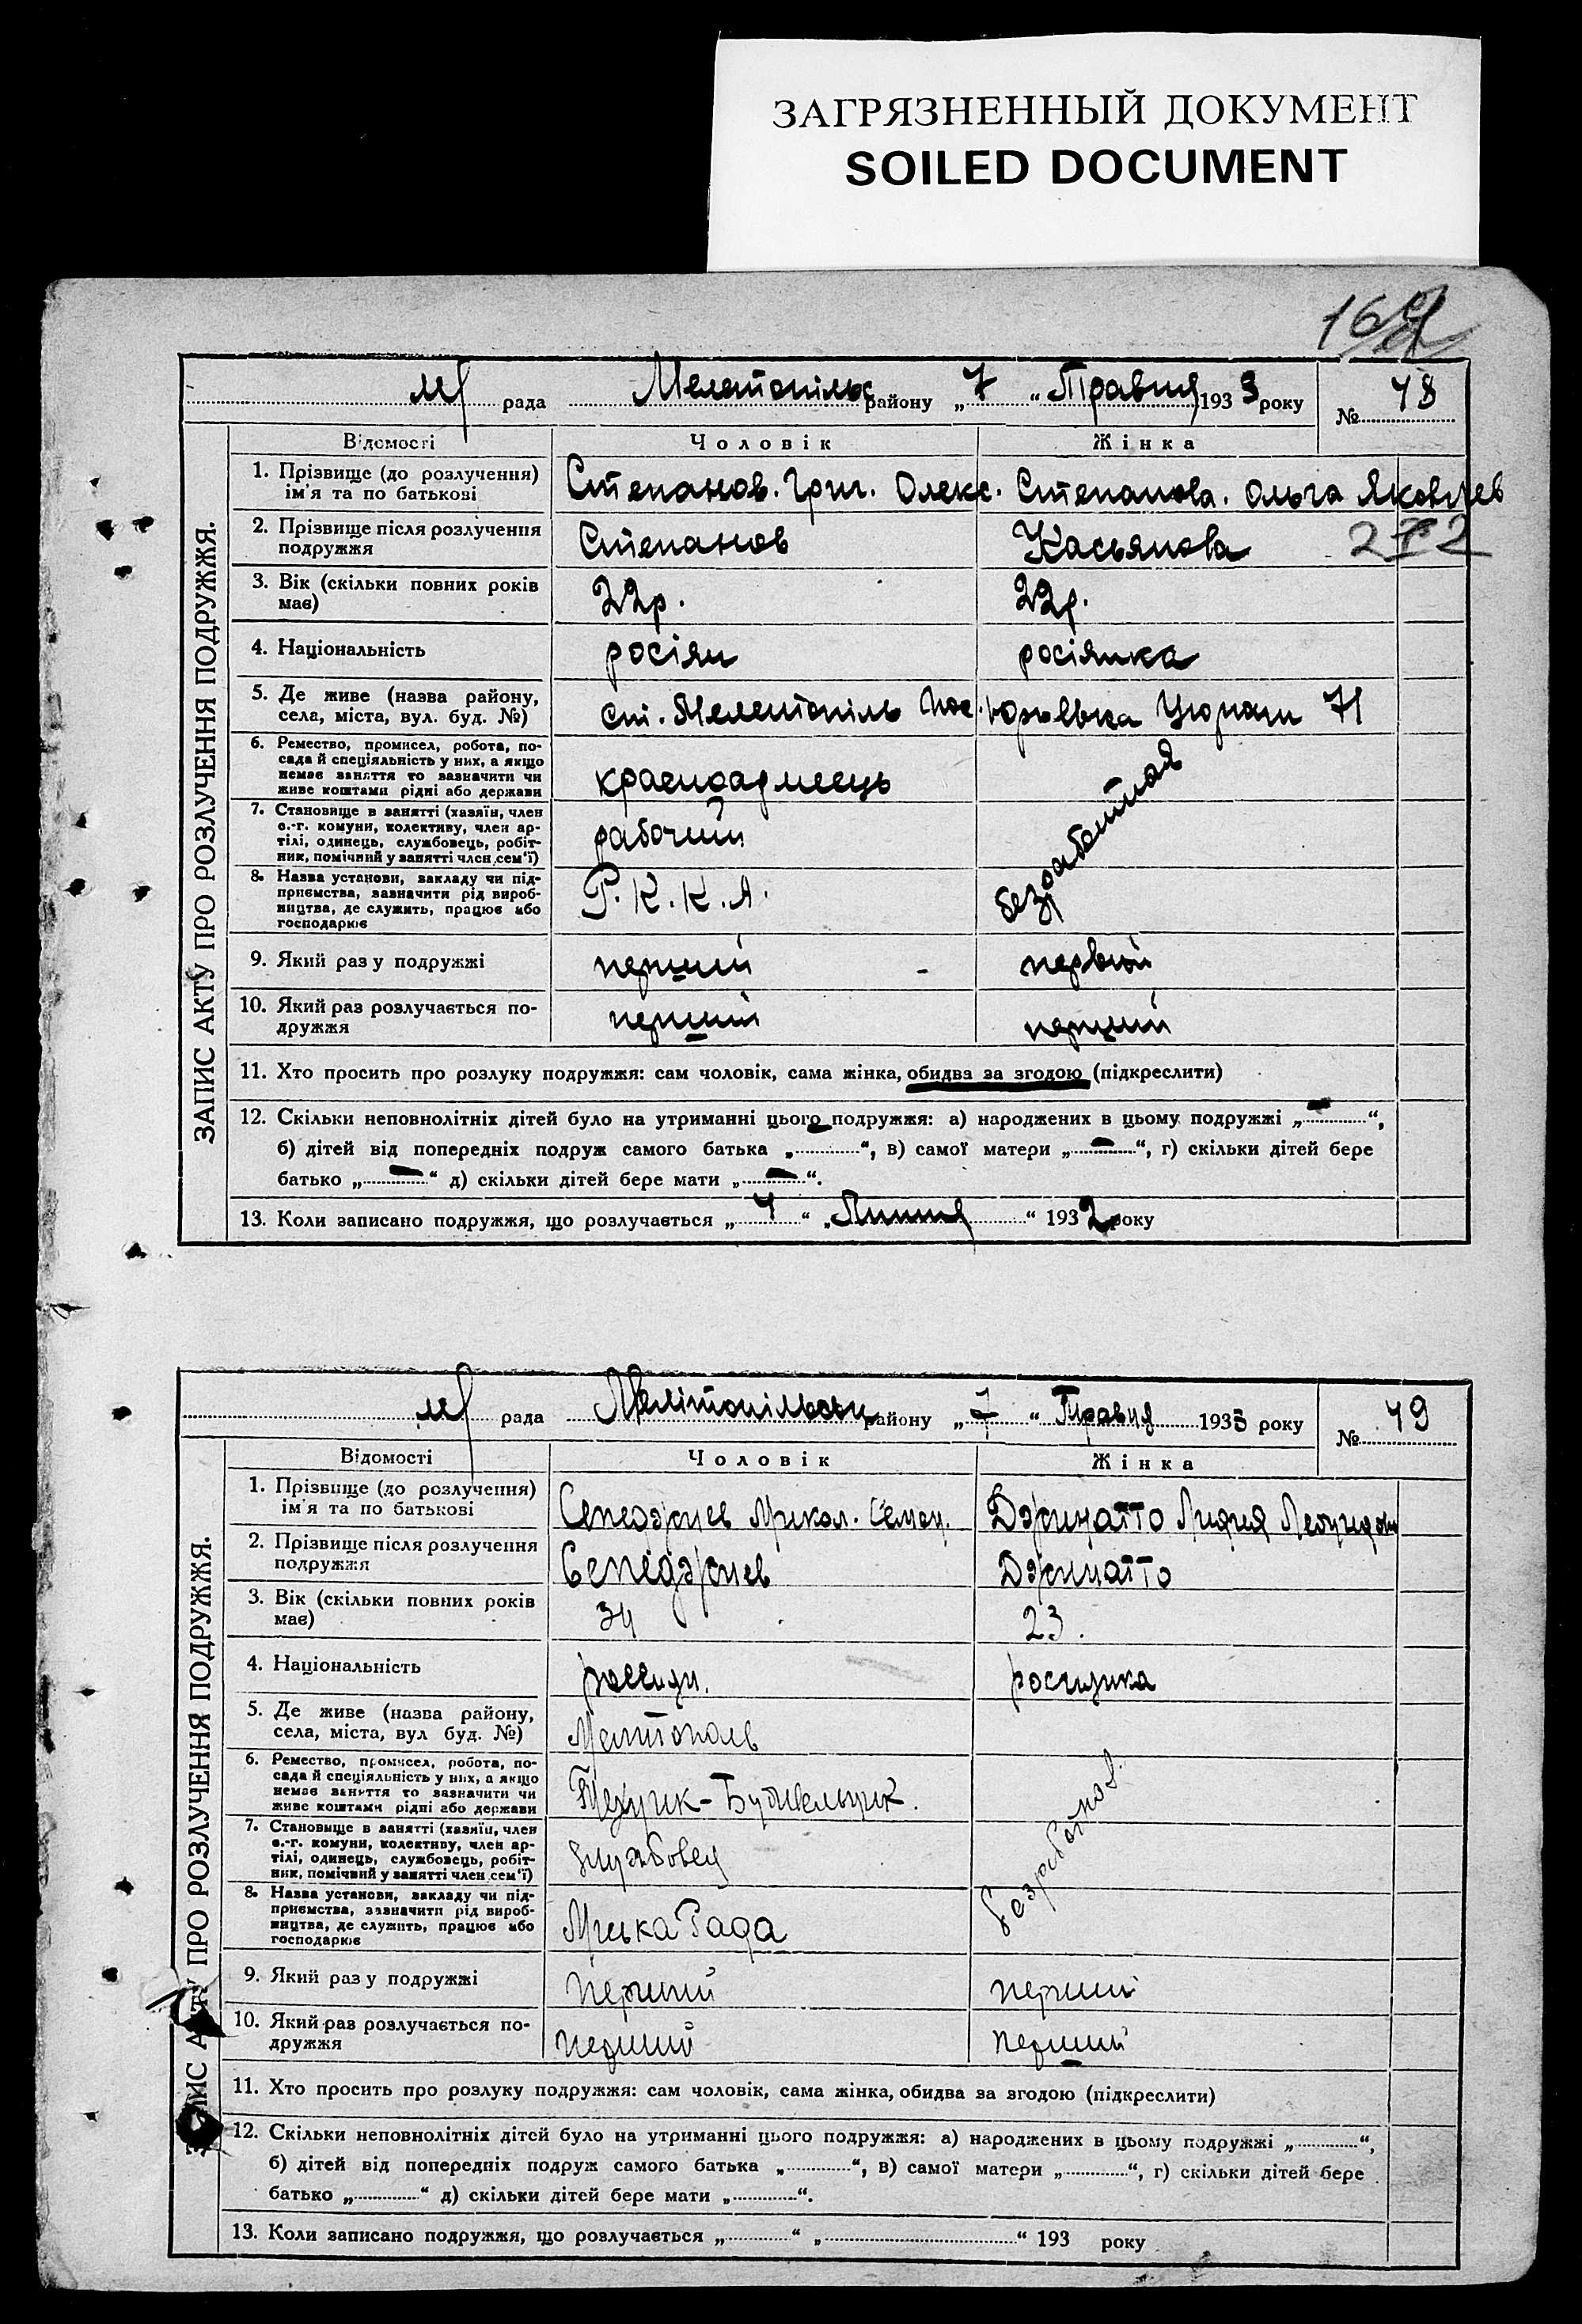 ЗАГРЯЗНЕННЫЙ ДОКУМЕНТ
SOILED DOCUMENT
ЗАПИС АКТУ ПРО РОЗЛУЧЕННЯ ПОДРУЖЖЯ.
рада Мелетопільс району „7“ Травня 1933 року № 48
Відомості Чоловік Жінка
1. Прізвище (до розлучення) Степанов. Григ. Олекс. Степанова. Ольга Яковлев
ім'я та по батькові
2. Прізвище після розлучення Степанов Касьянова
подружжя
3. Вік (скільки повних років 22р. 22р.
має)
4. Національність росіян росіянка
5. Де живе (назва району, ст. Мелетопіль пос. Юрьевка
села, міста, вул. буд. №)
6. Ремество, промисел, робота, по- красноармеець безработная
сада й спеціяльність у них, а якщо
немає заняття то зазначити чи
живе коштами рідні або держави
7. Становище в занятті (хазяїн, член рабочий
с.-г. комуни, колективу, член ар-
тілі, одинець, службовець, робіт-
ник, помічний у занятті член сем'ї)
8. Назва установи, закладу чи під- Р.К.К.А.
приємства, зазначити рід вироб-
ництва, де служить, працює або
господарює
9. Який раз у подружжі перший первый
10. Який раз розлучається по- перший перший
дружжя
11. Хто просить про розлуку подружжя: сам чоловік, сама жінка, обидва за згодою (підкреслити)
12. Скільки неповнолітніх дітей було на утриманні цього подружжя: а) народжених в цьому подружжі „—“,
б) дітей від попередніх подруж самого батька „—“, в) самої матери „—“, г) скільки дітей бере
батько „—“ д) скільки дітей бере мати „—“.
13. Коли записано подружжя, що розлучається „4“ „Липня“ 1932 року
ЗАПИС АКТУ ПРО РОЗЛУЧЕННЯ ПОДРУЖЖЯ.
рада Мелітопільськ району „7“ Травня 1933 року № 49
Відомості Чоловік Жінка
1. Прізвище (до розлучення) Микол. Семен. Джинатто Лидия Леонидов
ім'я та по батькові
2. Прізвище після розлучення Сепеджиев Джинатто
подружжя
3. Вік (скільки повних років 34 23.
має)
4. Національність россиян. росиянка
5. Де живе (назва району, Мелитополь
села, міста, вул буд. №)
6. Ремество, промисел, робота, по- Техник-Будивельник. безработной.
сада й спеціяльність у них, а якщо
немає заняття то зазначити чи
живе коштами рідні або держави
7. Становище в занятті (хазяїн, член службовец
с.-г. комуни, колективу, член ар-
тілі, одинець, службовець, робіт-
ник, помічний у занятті член сем'ї)
8. Назва установи, закладу чи під- Миська Рада
приємства, зазначити рід вироб-
ництва, де служить, працює або
господарює
9. Який раз у подружжі перший перший
10. Який раз розлучається по- перший перший
дружжя
11. Хто просить про розлуку подружжя: сам чоловік, сама жінка, обидва за згодою (підкреслити)
12. Скільки неповнолітніх дітей було на утриманні цього подружжя: а) народжених в цьому подружжі „ “,
б) дітей від попередніх подруж самого батька „ “, в) самої матери „ “, г) скільки дітей бере
батько „ “ д) скільки дітей бере мати „ “.
13. Коли записано подружжя, що розлучається „ “ „ “ 193 року